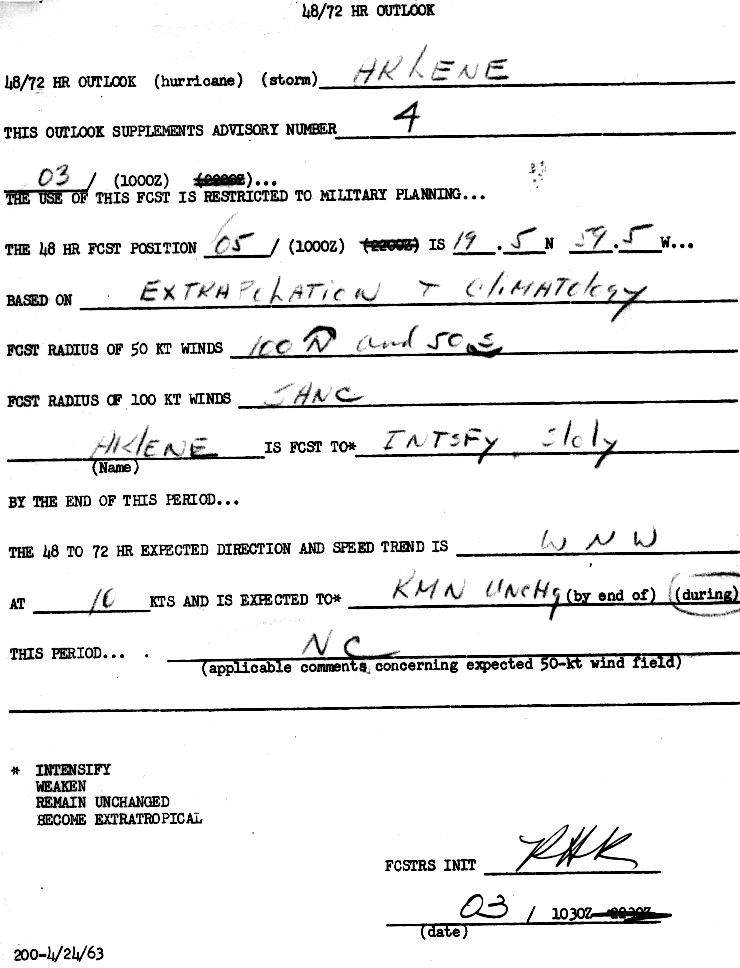 48/72 HR OUTLOOK
48/72 HR OUTLOOK (hurricane) (storm) ARLENE
THIS OUTLOOK SUPPLEMENTS ADVISORY NUMBER 4
03 / (1000Z) (2200Z)...
THE USE OF THIS FCST IS RESTRICTED TO MILITARY PLANNING...
THE 48 HR FCST POSITION 05 / (1000Z) (2200Z) IS 19.5 N 59.5 W...
BASED ON EXTRAPOLATION + CLIMATOLOGY
FCST RADIUS OF 50 KT WINDS 100 N and 50 S
FCST RADIUS OF 100 KT WINDS
ARLENE IS FCST TO* INTSFY SLOLY
(Name)
BY THE END OF THIS PERIOD...
THE 48 TO 72 HR EXPECTED DIRECTION AND SPEED TREND IS WNW
AT 10 KTS AND IS EXPECTED TO* RMN UNCHG (by end of) (during)
THIS PERIOD... . NC
(applicable comments concerning expected 50-kt wind field)
* INTENSIFY
WEAKEN
REMAIN UNCHANGED
BECOME EXTRATROPICAL
FCSTRS INIT RHK
03 / 1030Z 2230Z
(date)
200-4/24/63